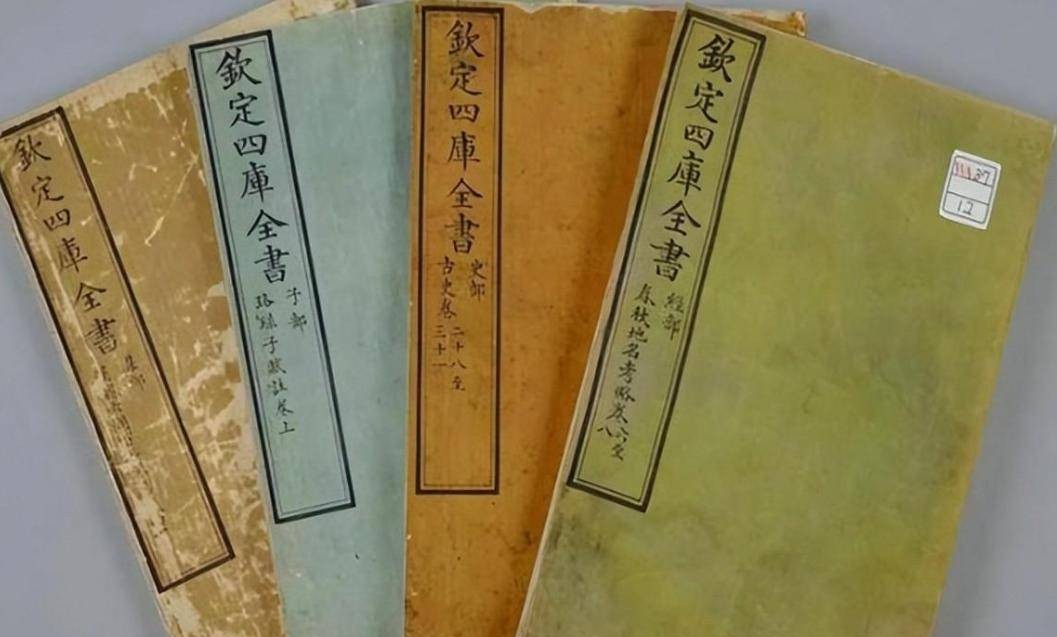 欽定四庫全書
經部
春秋地名考略卷六至
八
37
12
欽定四庫全書
史部
古史卷二十八至
三十一
欽定四庫全書
子部
珞琭子賦註卷上
欽定四庫全書
集部